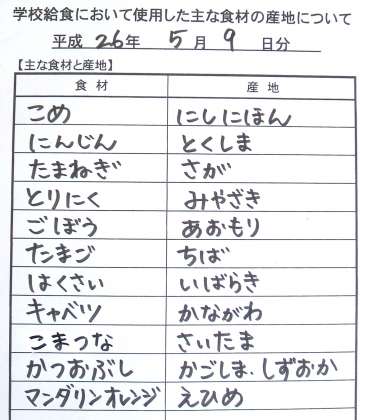 学校給食において使用した主な食材の産地について
平成 26年 5月 9日分
【主な食材と産地】
食材 産地
こめ にしにほん
にんじん とくしま
たまねぎ さが
とりにく みやざき
ごぼう あおもり
たまご ちば
はくさい いばらき
キャベツ かながわ
こまつな さいたま
かつおぶし かごしま、しずおか
マンダリンオレンジ えひめ